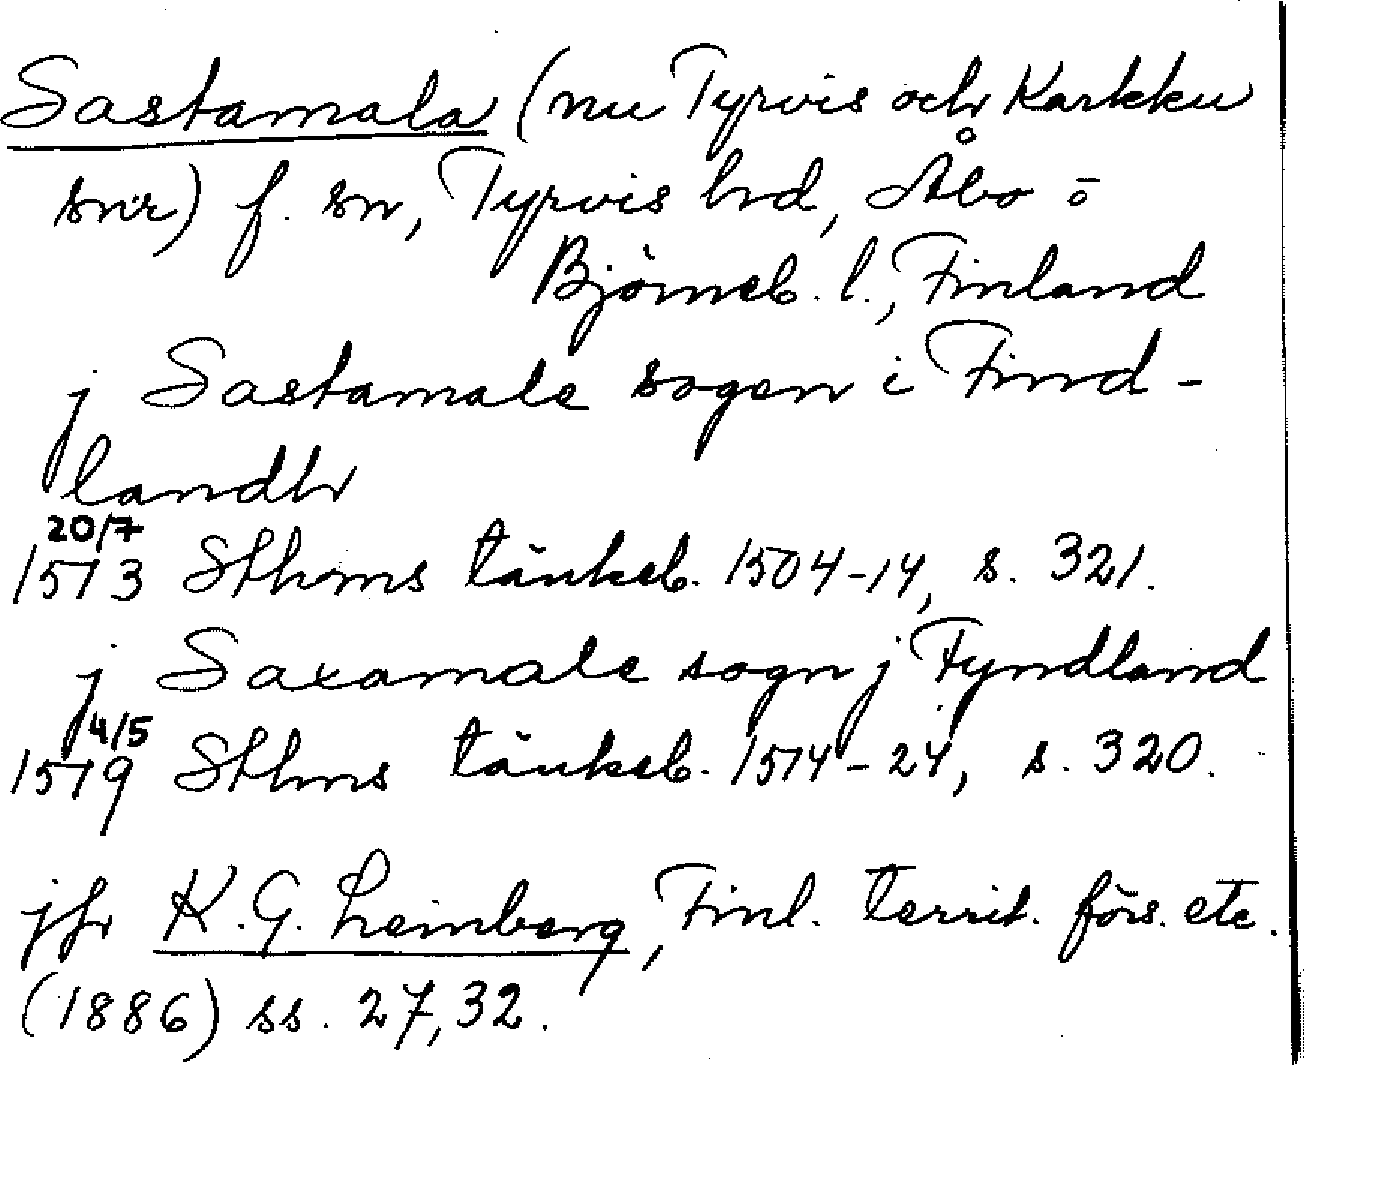 Sastamala (nu Tyrvis och Karkku
snr) f. sn, Tyrvis hd, Åbo o
Björneb. l., Finland
j Sastamale sogen i Find-
landh
20/7
1513 Sthms tänkeb. 1504-14, s. 321.
j Saxamale sogn j Fyndland
4/5
1519 Sthms tänkeb. 1514-24, s. 320.
jfr K. G. Leinberg, Finl. territ. förs. etc.
(1886) ss. 27, 32.